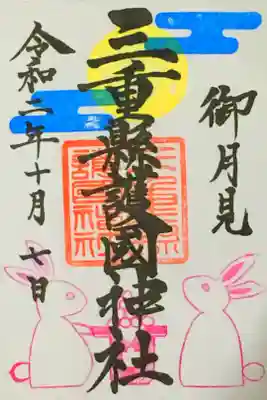 御月見
三重縣護國神社
令和二年十月七日